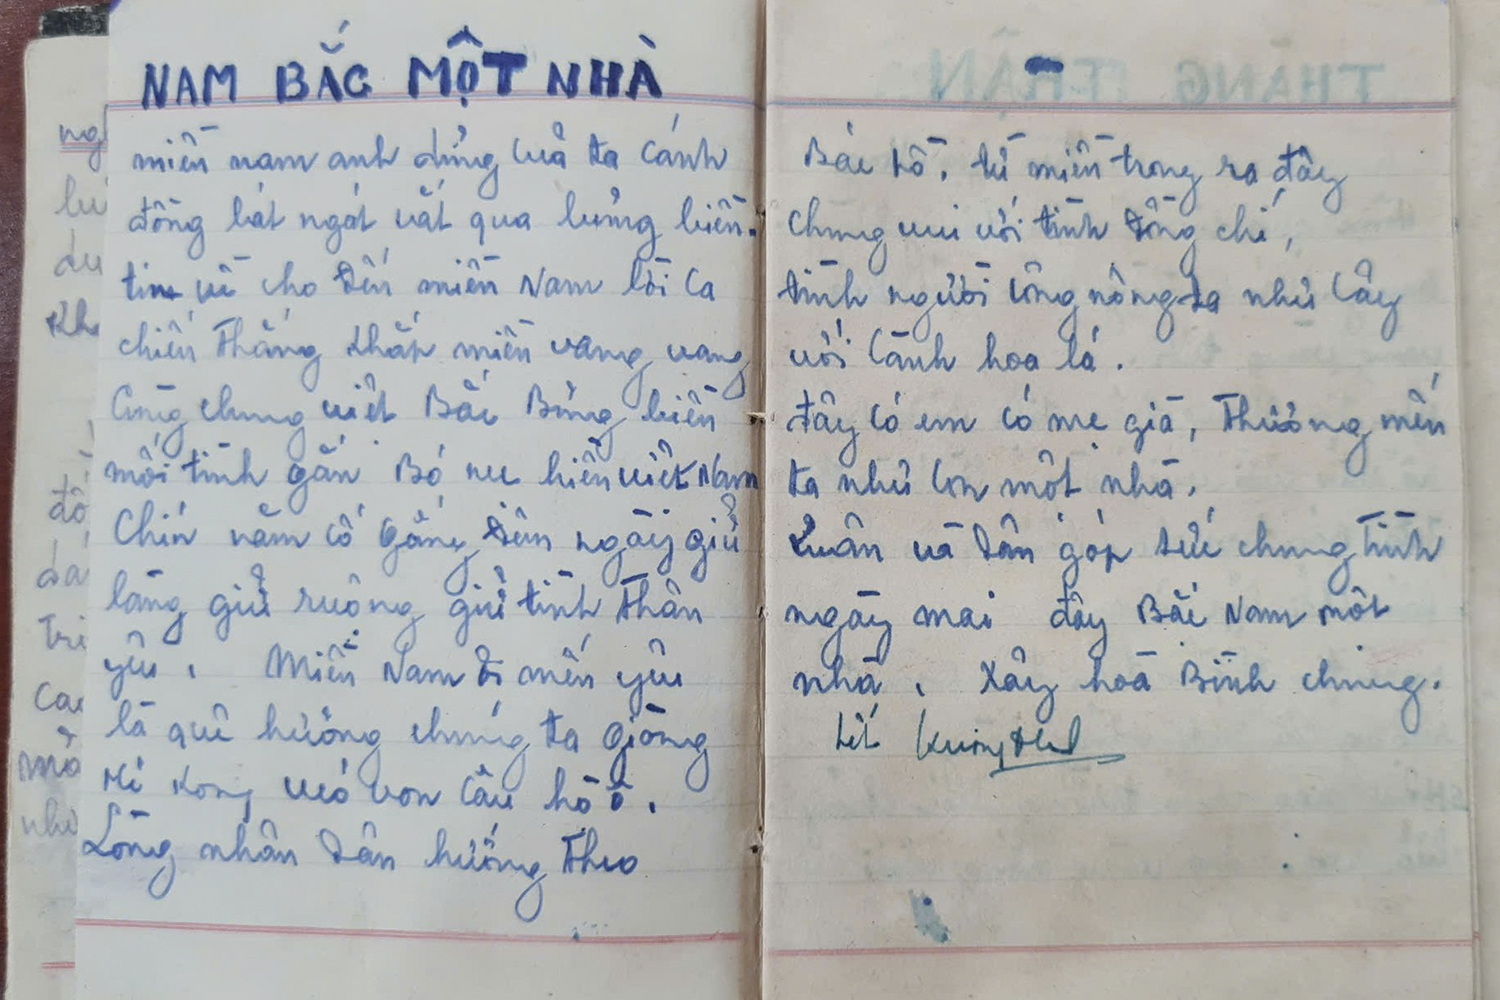 NAM BẮC MỘT NHÀ
miền nam anh dủng của ta Cánh
đồng bát ngát vắt qua lưng biển.
tin về cho đến miền Nam lời Ca
chiến Thắng khắp miền vang vang
Cùng chung việt Bắc Bừng biển
mối tình gắn Bó mẹ hiền việt Nam
Chín năm cố gắng đêm ngày giử
làng giử ruộng giử tình Thân
yêu. Miền Nam ơi mến yêu
là quê hương chúng ta giòng
Mê Kong, câu hò ơ.
Lòng nhân dân hướng Theo
Bác Hồ. từ miền trong ra đây
Chung vui với tình đồng chí,
tình người công nông ta như Cây
với Cành hoa lá.
đây có em có mẹ già, Thương mến
ta như con một nhà.
Quân và dân góp sức chung tình
ngày mai đây Bắc Nam một
nhà. Xây hoà Bình chung.
hết
ng
Kh
đồ
Tri
Ca
mồ
nh
THÁNG TRẬN